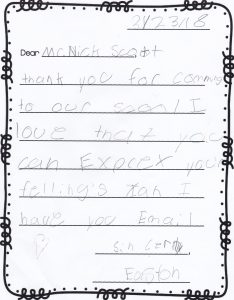 2/23/18
Dear Mr. Nick Scott
thank you for comming
to our scool I
love that you
can Exprex your
felling's kan I
have you Email
Easton